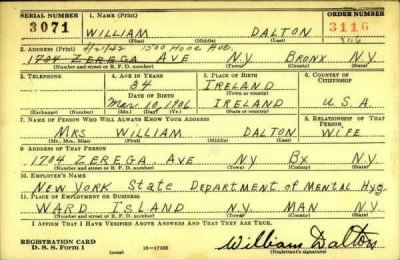 SERIAL NUMBER 1. NAME (Print) ORDER NUMBER
3071 WILLIAM DALTON 3116
(First) (Middle) (Last)
2. ADDRESS (Print) 4/21/42 1500 Hone Ave.
1704 ZEREGA AVE N.Y. BRONX N.Y.
(Number and street or R. F. D. number) (Town) (County) (State)
3. TELEPHONE 4. AGE IN YEARS 5. PLACE OF BIRTH 6. COUNTRY OF CITIZENSHIP
34 IRELAND
DATE OF BIRTH (Town or county)
Mar. 10, 1906 IRELAND U.S.A.
(Exchange) (Number) (Mo.) (Day) (Yr.) (State or country)
7. NAME OF PERSON WHO WILL ALWAYS KNOW YOUR ADDRESS 8. RELATIONSHIP OF THAT PERSON
MRS WILLIAM DALTON WIFE
(Mr., Mrs., Miss) (First) (Middle) (Last)
9. ADDRESS OF THAT PERSON
1704 ZEREGA AVE NY BX N.Y.
(Number and street or R. F. D. number) (Town) (County) (State)
10. EMPLOYER'S NAME
NEW YORK STATE DEPARTMENT OF MENTAL HYG
11. PLACE OF EMPLOYMENT OR BUSINESS
WARD ISLAND NY MAN N.Y.
(Number and street or R. F. D. number) (Town) (County) (State)
I AFFIRM THAT I HAVE VERIFIED ABOVE ANSWERS AND THAT THEY ARE TRUE.
REGISTRATION CARD
D. S. S. Form 1 (over) 16—17105 William Dalton
(Registrant's signature)